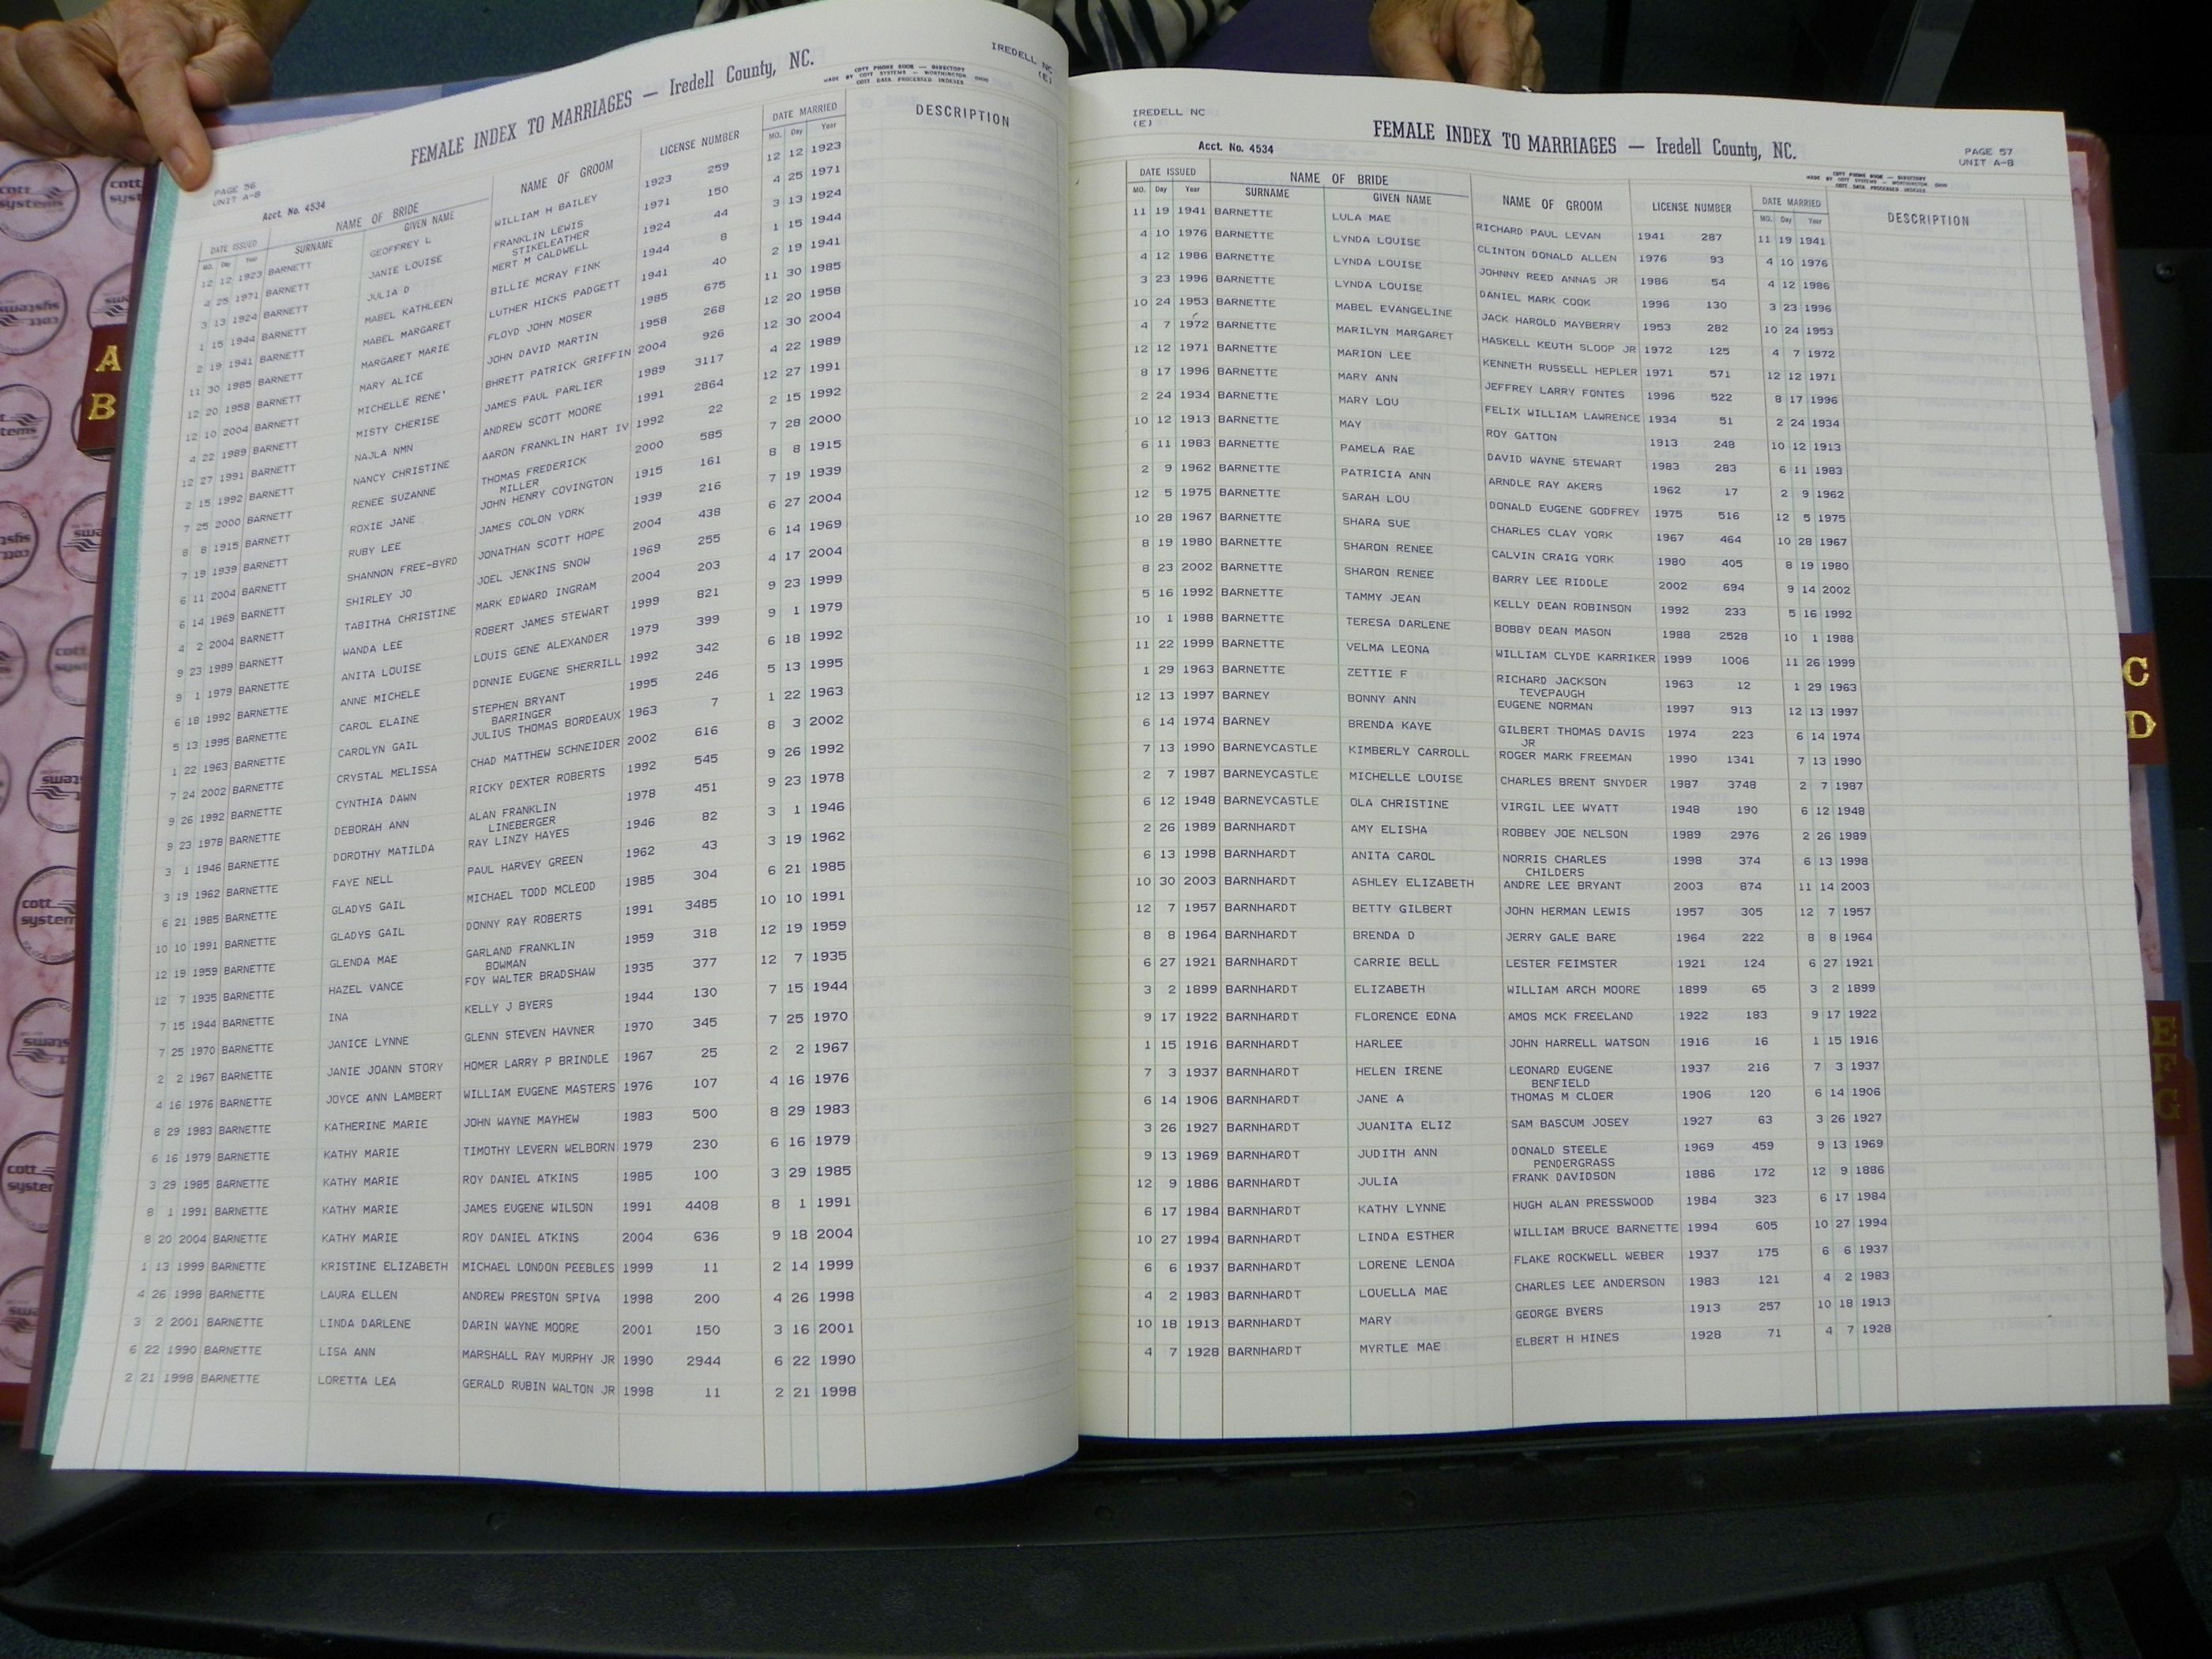 FEMALE INDEX TO MARRIAGES — Iredell County, NC.
IREDELL NC
(E)
COTT PHONE BOOK — DIRECTORY
MADE BY COTT SYSTEMS — WORTHINGTON OHIO
COTT DATA PROCESSED INDEXES
PAGE 56
UNIT A-B
Acct. No. 4534
DATE ISSUED NAME OF BRIDE NAME OF GROOM LICENSE NUMBER DATE MARRIED DESCRIPTION
MO. Day Year SURNAME GIVEN NAME MO. Day Year
12 12 1923 BARNETT GEOFFREY L WILLIAM H BAILEY 1923 259 12 12 1923
4 25 1971 BARNETT JANIE LOUISE FRANKLIN LEWIS 1971 150 4 25 1971
STIKELEATHER
3 13 1924 BARNETT JULIA D MERT M CALDWELL 1924 44 3 13 1924
1 15 1944 BARNETT MABEL KATHLEEN BILLIE MCRAY FINK 1944 8 1 15 1944
2 19 1941 BARNETT MABEL MARGARET LUTHER HICKS PADGETT 1941 40 2 19 1941
11 30 1985 BARNETT MARGARET MARIE FLOYD JOHN MOSER 1985 675 11 30 1985
12 20 1958 BARNETT MARY ALICE JOHN DAVID MARTIN 1958 268 12 20 1958
12 10 2004 BARNETT MICHELLE RENE' BHRETT PATRICK GRIFFIN 2004 926 12 30 2004
4 22 1989 BARNETT MISTY CHERISE JAMES PAUL PARLIER 1989 3117 4 22 1989
12 27 1991 BARNETT NAJLA NMN ANDREW SCOTT MOORE 1991 2864 12 27 1991
2 15 1992 BARNETT NANCY CHRISTINE AARON FRANKLIN HART IV 1992 22 2 15 1992
7 25 2000 BARNETT RENEE SUZANNE THOMAS FREDERICK 2000 585 7 28 2000
MILLER
8 8 1915 BARNETT ROXIE JANE JOHN HENRY COVINGTON 1915 161 8 8 1915
7 19 1939 BARNETT RUBY LEE JAMES COLON YORK 1939 216 7 19 1939
6 11 2004 BARNETT SHANNON FREE-BYRD JONATHAN SCOTT HOPE 2004 438 6 27 2004
6 14 1969 BARNETT SHIRLEY JO JOEL JENKINS SNOW 1969 255 6 14 1969
4 2 2004 BARNETT TABITHA CHRISTINE MARK EDWARD INGRAM 2004 203 4 17 2004
9 23 1999 BARNETT WANDA LEE ROBERT JAMES STEWART 1999 821 9 23 1999
9 1 1979 BARNETTE ANITA LOUISE LOUIS GENE ALEXANDER 1979 399 9 1 1979
6 18 1992 BARNETTE ANNE MICHELE DONNIE EUGENE SHERRILL 1992 342 6 18 1992
5 13 1995 BARNETTE CAROL ELAINE STEPHEN BRYANT 1995 246 5 13 1995
BARRINGER
1 22 1963 BARNETTE CAROLYN GAIL JULIUS THOMAS BORDEAUX 1963 7 1 22 1963
7 24 2002 BARNETTE CRYSTAL MELISSA CHAD MATTHEW SCHNEIDER 2002 616 8 3 2002
9 26 1992 BARNETTE CYNTHIA DAWN RICKY DEXTER ROBERTS 1992 545 9 26 1992
9 23 1978 BARNETTE DEBORAH ANN ALAN FRANKLIN 1978 451 9 23 1978
LINEBERGER
3 1 1946 BARNETTE DOROTHY MATILDA RAY LINZY HAYES 1946 82 3 1 1946
3 19 1962 BARNETTE FAYE NELL PAUL HARVEY GREEN 1962 43 3 19 1962
6 21 1985 BARNETTE GLADYS GAIL MICHAEL TODD MCLEOD 1985 304 6 21 1985
10 10 1991 BARNETTE GLADYS GAIL DONNY RAY ROBERTS 1991 3485 10 10 1991
12 19 1959 BARNETTE GLENDA MAE GARLAND FRANKLIN 1959 318 12 19 1959
BOWMAN
12 7 1935 BARNETTE HAZEL VANCE FOY WALTER BRADSHAW 1935 377 12 7 1935
7 15 1944 BARNETTE INA KELLY J BYERS 1944 130 7 15 1944
7 25 1970 BARNETTE JANICE LYNNE GLENN STEVEN HAVNER 1970 345 7 25 1970
2 2 1967 BARNETTE JANIE JOANN STORY HOMER LARRY P BRINDLE 1967 25 2 2 1967
4 16 1976 BARNETTE JOYCE ANN LAMBERT WILLIAM EUGENE MASTERS 1976 107 4 16 1976
8 29 1983 BARNETTE KATHERINE MARIE JOHN WAYNE MAYHEW 1983 500 8 29 1983
6 16 1979 BARNETTE KATHY MARIE TIMOTHY LEVERN WELBORN 1979 230 6 16 1979
3 29 1985 BARNETTE KATHY MARIE ROY DANIEL ATKINS 1985 100 3 29 1985
8 1 1991 BARNETTE KATHY MARIE JAMES EUGENE WILSON 1991 4408 8 1 1991
8 20 2004 BARNETTE KATHY MARIE ROY DANIEL ATKINS 2004 636 9 18 2004
1 13 1999 BARNETTE KRISTINE ELIZABETH MICHAEL LONDON PEEBLES 1999 11 2 14 1999
4 26 1998 BARNETTE LAURA ELLEN ANDREW PRESTON SPIVA 1998 200 4 26 1998
3 2 2001 BARNETTE LINDA DARLENE DARIN WAYNE MOORE 2001 150 3 16 2001
6 22 1990 BARNETTE LISA ANN MARSHALL RAY MURPHY JR 1990 2944 6 22 1990
2 21 1998 BARNETTE LORETTA LEA GERALD RUBIN WALTON JR 1998 11 2 21 1998
IREDELL NC
(E)
FEMALE INDEX TO MARRIAGES — Iredell County, NC.
Acct. No. 4534
PAGE 57
UNIT A-B
COTT PHONE BOOK — DIRECTORY
MADE BY COTT SYSTEMS — WORTHINGTON OHIO
COTT DATA PROCESSED INDEXES
DATE ISSUED NAME OF BRIDE NAME OF GROOM LICENSE NUMBER DATE MARRIED DESCRIPTION
MO. Day Year SURNAME GIVEN NAME MO. Day Year
11 19 1941 BARNETTE LULA MAE RICHARD PAUL LEVAN 1941 287 11 19 1941
4 10 1976 BARNETTE LYNDA LOUISE CLINTON DONALD ALLEN 1976 93 4 10 1976
4 12 1986 BARNETTE LYNDA LOUISE JOHNNY REED ANNAS JR 1986 54 4 12 1986
3 23 1996 BARNETTE LYNDA LOUISE DANIEL MARK COOK 1996 130 3 23 1996
10 24 1953 BARNETTE MABEL EVANGELINE JACK HAROLD MAYBERRY 1953 282 10 24 1953
4 7 1972 BARNETTE MARILYN MARGARET HASKELL KEUTH SLOOP JR 1972 125 4 7 1972
12 12 1971 BARNETTE MARION LEE KENNETH RUSSELL HEPLER 1971 571 12 12 1971
8 17 1996 BARNETTE MARY ANN JEFFREY LARRY FONTES 1996 522 8 17 1996
2 24 1934 BARNETTE MARY LOU FELIX WILLIAM LAWRENCE 1934 51 2 24 1934
10 12 1913 BARNETTE MAY ROY GATTON 1913 248 10 12 1913
6 11 1983 BARNETTE PAMELA RAE DAVID WAYNE STEWART 1983 283 6 11 1983
2 9 1962 BARNETTE PATRICIA ANN ARNDLE RAY AKERS 1962 17 2 9 1962
12 5 1975 BARNETTE SARAH LOU DONALD EUGENE GODFREY 1975 516 12 5 1975
10 28 1967 BARNETTE SHARA SUE CHARLES CLAY YORK 1967 464 10 28 1967
8 19 1980 BARNETTE SHARON RENEE CALVIN CRAIG YORK 1980 405 8 19 1980
8 23 2002 BARNETTE SHARON RENEE BARRY LEE RIDDLE 2002 694 9 14 2002
5 16 1992 BARNETTE TAMMY JEAN KELLY DEAN ROBINSON 1992 233 5 16 1992
10 1 1988 BARNETTE TERESA DARLENE BOBBY DEAN MASON 1988 2528 10 1 1988
11 22 1999 BARNETTE VELMA LEONA WILLIAM CLYDE KARRIKER 1999 1006 11 26 1999
1 29 1963 BARNETTE ZETTIE F RICHARD JACKSON 1963 12 1 29 1963
TEVEPAUGH
12 13 1997 BARNEY BONNY ANN EUGENE NORMAN 1997 913 12 13 1997
6 14 1974 BARNEY BRENDA KAYE GILBERT THOMAS DAVIS 1974 223 6 14 1974
JR
7 13 1990 BARNEYCASTLE KIMBERLY CARROLL ROGER MARK FREEMAN 1990 1341 7 13 1990
2 7 1987 BARNEYCASTLE MICHELLE LOUISE CHARLES BRENT SNYDER 1987 3748 2 7 1987
6 12 1948 BARNEYCASTLE OLA CHRISTINE VIRGIL LEE WYATT 1948 190 6 12 1948
2 26 1989 BARNHARDT AMY ELISHA ROBBEY JOE NELSON 1989 2976 2 26 1989
6 13 1998 BARNHARDT ANITA CAROL NORRIS CHARLES 1998 374 6 13 1998
CHILDERS
10 30 2003 BARNHARDT ASHLEY ELIZABETH ANDRE LEE BRYANT 2003 874 11 14 2003
12 7 1957 BARNHARDT BETTY GILBERT JOHN HERMAN LEWIS 1957 305 12 7 1957
8 8 1964 BARNHARDT BRENDA D JERRY GALE BARE 1964 222 8 8 1964
6 27 1921 BARNHARDT CARRIE BELL LESTER FEIMSTER 1921 124 6 27 1921
3 2 1899 BARNHARDT ELIZABETH WILLIAM ARCH MOORE 1899 65 3 2 1899
9 17 1922 BARNHARDT FLORENCE EDNA AMOS MCK FREELAND 1922 183 9 17 1922
1 15 1916 BARNHARDT HARLEE JOHN HARRELL WATSON 1916 16 1 15 1916
7 3 1937 BARNHARDT HELEN IRENE LEONARD EUGENE 1937 216 7 3 1937
BENFIELD
6 14 1906 BARNHARDT JANE A THOMAS M CLOER 1906 120 6 14 1906
3 26 1927 BARNHARDT JUANITA ELIZ SAM BASCUM JOSEY 1927 63 3 26 1927
9 13 1969 BARNHARDT JUDITH ANN DONALD STEELE 1969 459 9 13 1969
PENDERGRASS
12 9 1886 BARNHARDT JULIA FRANK DAVIDSON 1886 172 12 9 1886
6 17 1984 BARNHARDT KATHY LYNNE HUGH ALAN PRESSWOOD 1984 323 6 17 1984
10 27 1994 BARNHARDT LINDA ESTHER WILLIAM BRUCE BARNETTE 1994 605 10 27 1994
6 6 1937 BARNHARDT LORENE LENOA FLAKE ROCKWELL WEBER 1937 175 6 6 1937
4 2 1983 BARNHARDT LOUELLA MAE CHARLES LEE ANDERSON 1983 121 4 2 1983
10 18 1913 BARNHARDT MARY GEORGE BYERS 1913 257 10 18 1913
4 7 1928 BARNHARDT MYRTLE MAE ELBERT H HINES 1928 71 4 7 1928
A
B
C
D
E
F
G
cott
systems